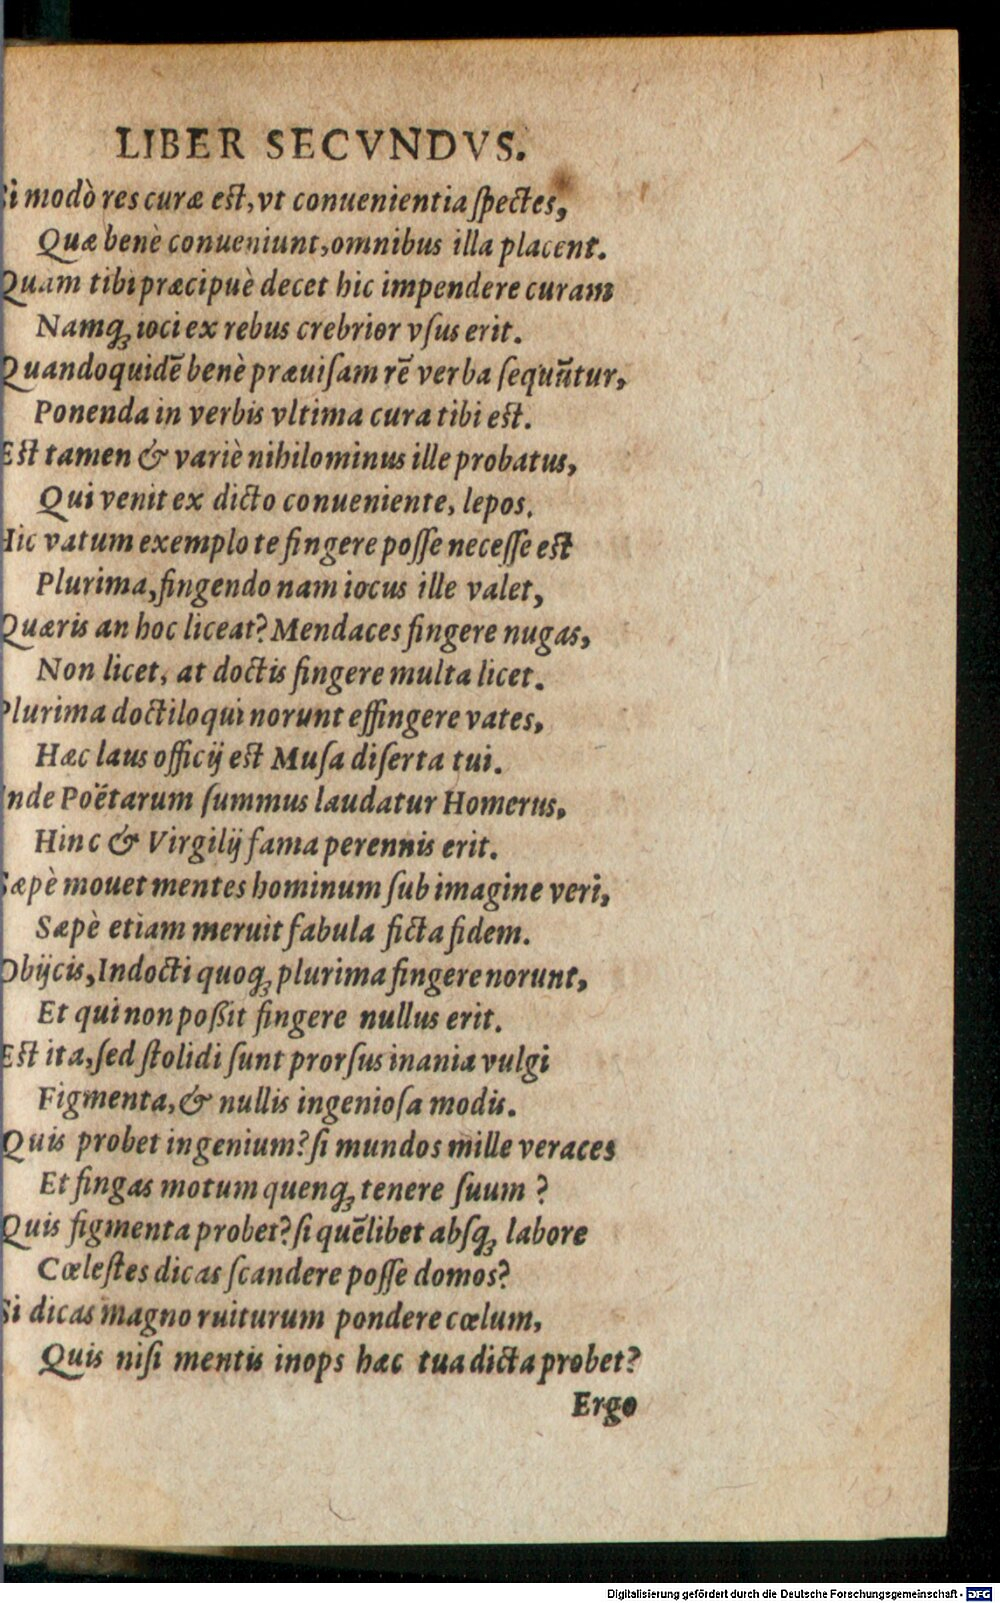 LIBER SECVNDVS.
Si modò res curæ est, vt conuenientia spectes,
Quæ benè conueniunt, omnibus illa placent.
Quam tibi præcipuè decet hic impendere curam
Namq; ioci ex rebus crebrior vſus erit.
Quandoquidē benè præuiſam rē verba ſequūtur,
Ponenda in verbis vltima cura tibi est.
Est tamen & variè nihilominus ille probatus,
Qui venit ex dicto conueniente, lepos.
Hic vatum exemplo te fingere poſſe neceſſe est
Plurima, fingendo nam iocus ille valet,
Quæris an hoc liceat? Mendaces fingere nugas,
Non licet, at doctis fingere multa licet.
Plurima doctiloqui norunt effingere vates,
Hæc laus officij est Muſa diſerta tui.
Inde Poëtarum ſummus laudatur Homerus,
Hinc & Virgilij fama perennis erit.
Sæpè mouet mentes hominum ſub imagine veri,
Sæpè etiam meruit fabula ficta fidem.
Obijcis, Indocti quoq; plurima fingere norunt,
Et qui non poßit fingere nullus erit.
Est ita, ſed ſtolidi ſunt prorſus inania vulgi
Figmenta, & nullis ingenioſa modis.
Quis probet ingenium? ſi mundos mille veraces
Et fingas motum quenq; tenere ſuum ?
Quis figmenta probet? ſi quēlibet abſq; labore
Cœleſtes dicas ſcandere poſſe domos?
Si dicas magno ruiturum pondere cœlum,
Quis niſi mentis inops hæc tua dicta probet?
Ergo
Digitalisierung gefördert durch die Deutsche Forschungsgemeinschaft - DFG